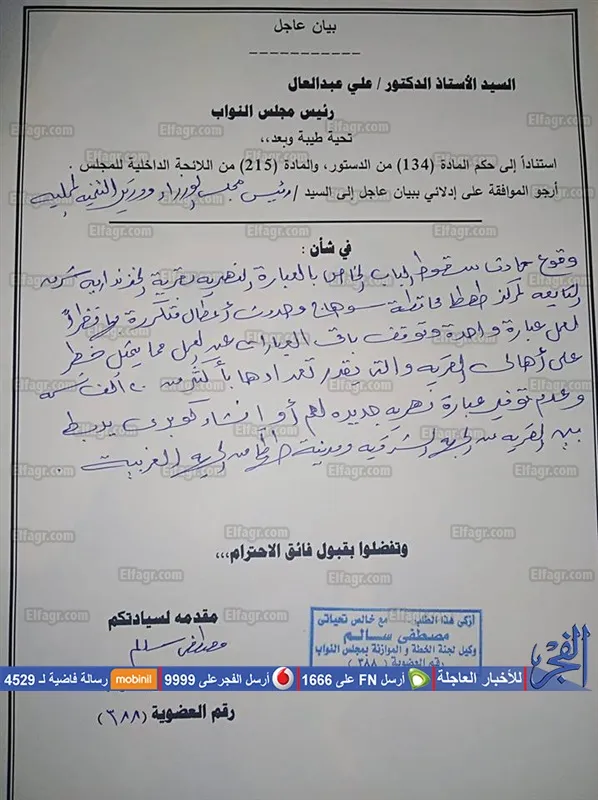 بيان عاجل
السيد الأستاذ الدكتور / علي عبدالعال
رئيس مجلس النواب
تحية طيبة وبعد،،
استناداً إلى حكم المادة (134) من الدستور، والمادة (215) من اللائحة الداخلية للمجلس .
أرجو الموافقة على إدلائي ببيان عاجل إلى السيد / رئيس مجلس الوزراء ووزير التنمية المحلية
في شأن :
وقوع حادث سقوط الباب الخاص بالعبارة النهرية بقرية الخزندارية شرق
التابعه لمركز طهطا محافظة سوهاج وحدوث أعطال متكررة
لعمل عبارة واحدة وتوقف باقى العبارات عن العمل مما يمثل خطر
على أهالى القريه والتى يقدر تعدادها بأكثر من ألف نسمه
وعدم توفير عبارة نهريه جديده لهم أو إنشاء كوبرى يربط
بين القريه من الجهه الشرقيه ومدينة طهطا من الجهه الغربية .
وتفضلوا بقبول فائق الاحترام،،،
مقدمه لسيادتكم
مصطفى سالم
أزكي هذا الطلب مع خالص تحياتى
مصطفى سالم
وكيل لجنة الخطة و الموازنة بمجلس النواب
رقم العضوية (٣٨٨)
الفجر
للأخبار العاجلة أرسل FN على 1666 أرسل الفجر على 9999 mobinil رسالة فاضية لـ 4529
رقم العضوية (٣٨٨)
Elfagr.com